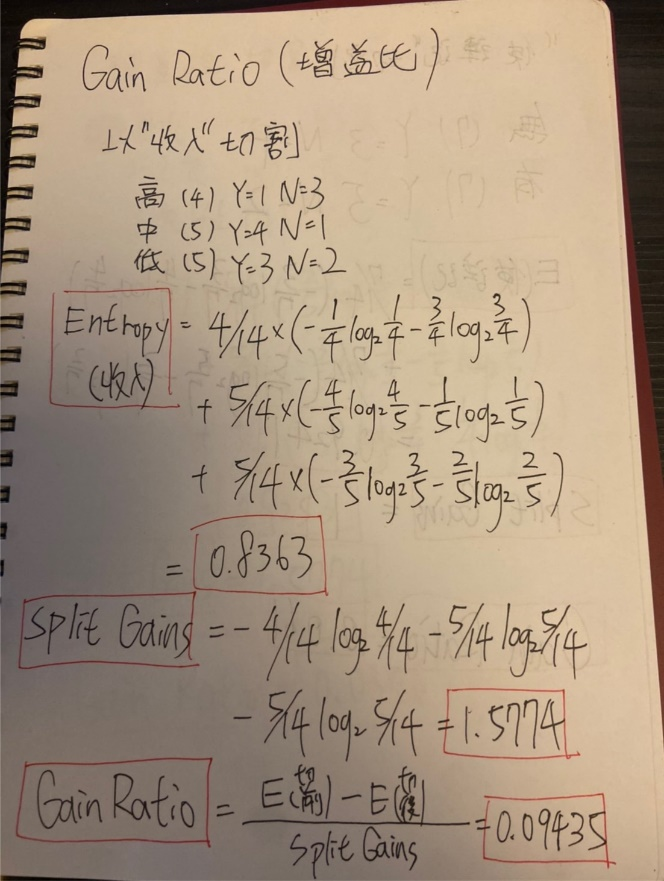 Gain Ratio (增益比)
以"收入"切割
高 (4) Y=1 N=3
中 (5) Y=4 N=1
低 (5) Y=3 N=2
Entropy (收入) = 4/14×(-1/4 log₂ 1/4 - 3/4 log₂ 3/4)
+ 5/14×(-4/5 log₂ 4/5 - 1/5 log₂ 1/5)
+ 5/14×(-3/5 log₂ 3/5 - 2/5 log₂ 2/5)
= 0.8363
Split Gains = - 4/14 log₂ 4/14 - 5/14 log₂ 5/14
- 5/14 log₂ 5/14 = 1.5774
Gain Ratio = E(切前) - E(切後) / Split Gains = 0.09435